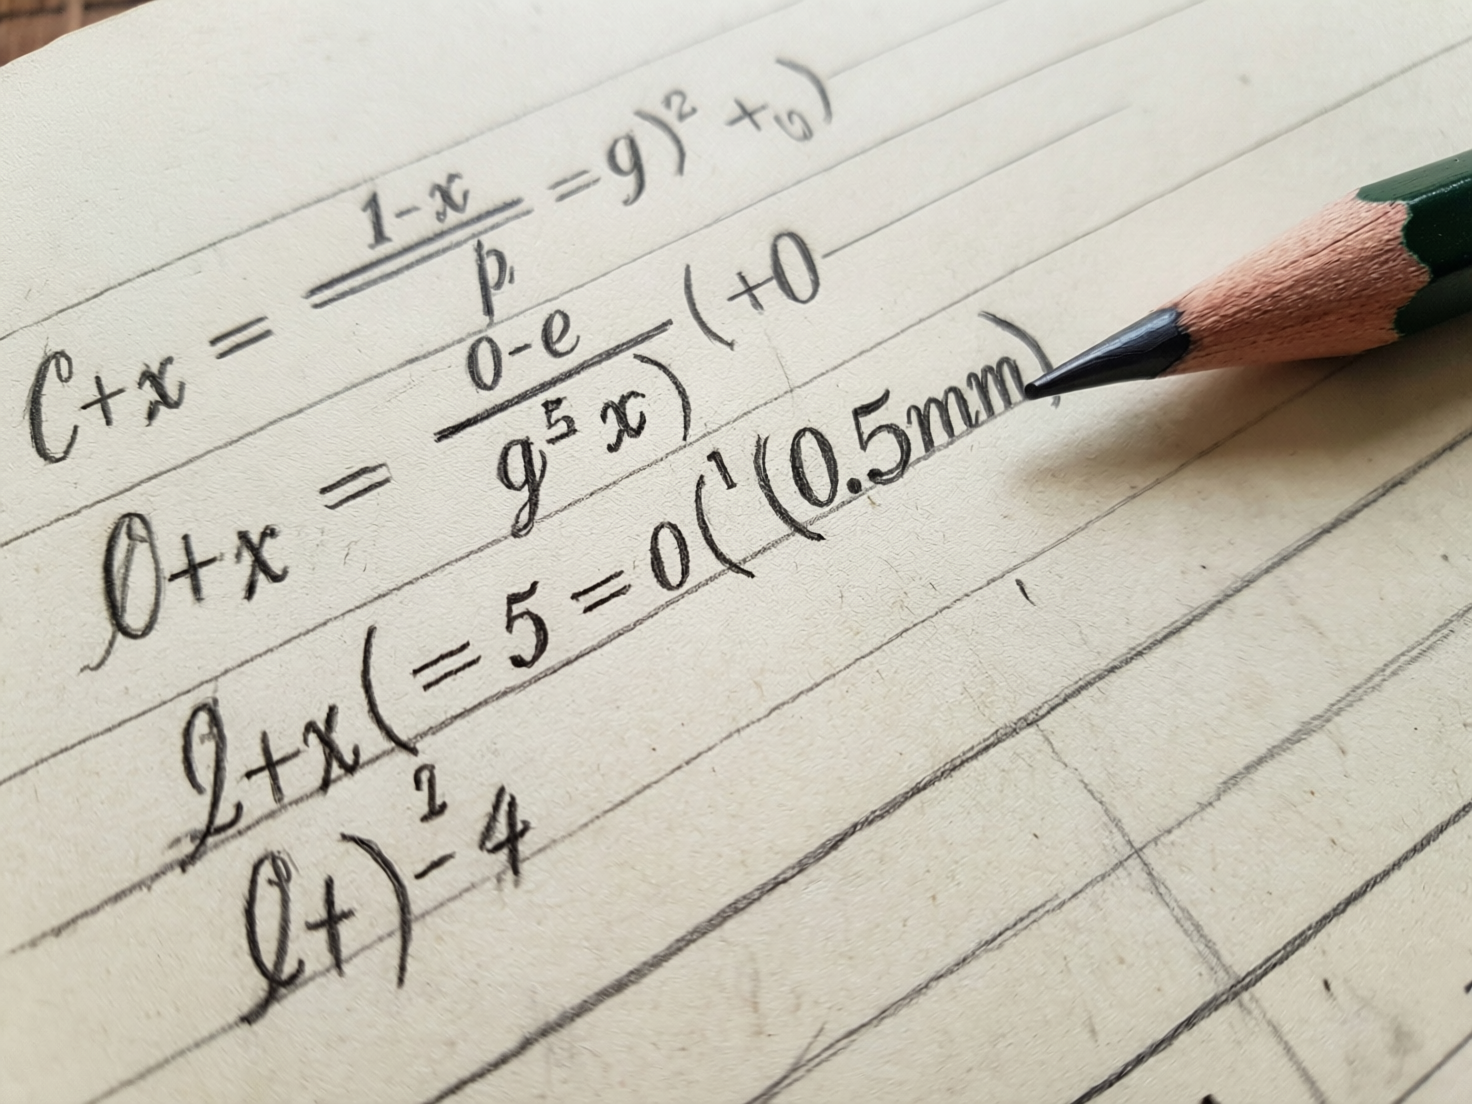 C+x = 1-x / p = g)² +0)
0+x = 0-e / g⁵ x) (+0
2+x ( = 5 = 0(¹(0.5mm)
l+)² - 4